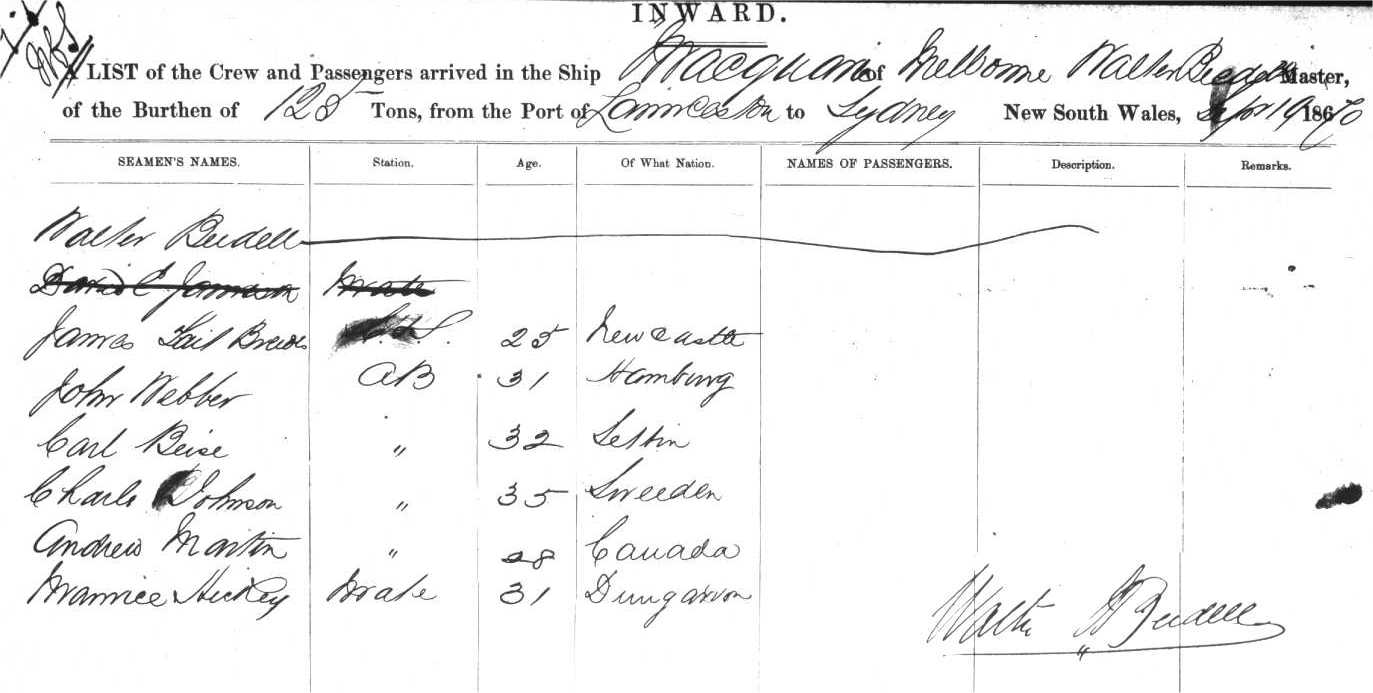 INWARD.
A LIST of the Crew and Passengers arrived in the Ship Macquarie of Melborne Walter Master,
of the Burthen of 125 Tons, from the Port of Launceston to Sydney New South Wales, 19 1870
SEAMEN'S NAMES. Station. Age. Of What Nation. NAMES OF PASSENGERS. Description. Remarks.
Walter Beedell
David C Jamieson Mate
James Tait 25 Newcastle
John Webber AB 31 Hamburg
Carl Beise " 32 Settin
Charls Johnson " 35 Sweeden
Andrew Martin " 28 Canada
Maurice Hickey Mate 31 Dungarvon
Walter Beedell